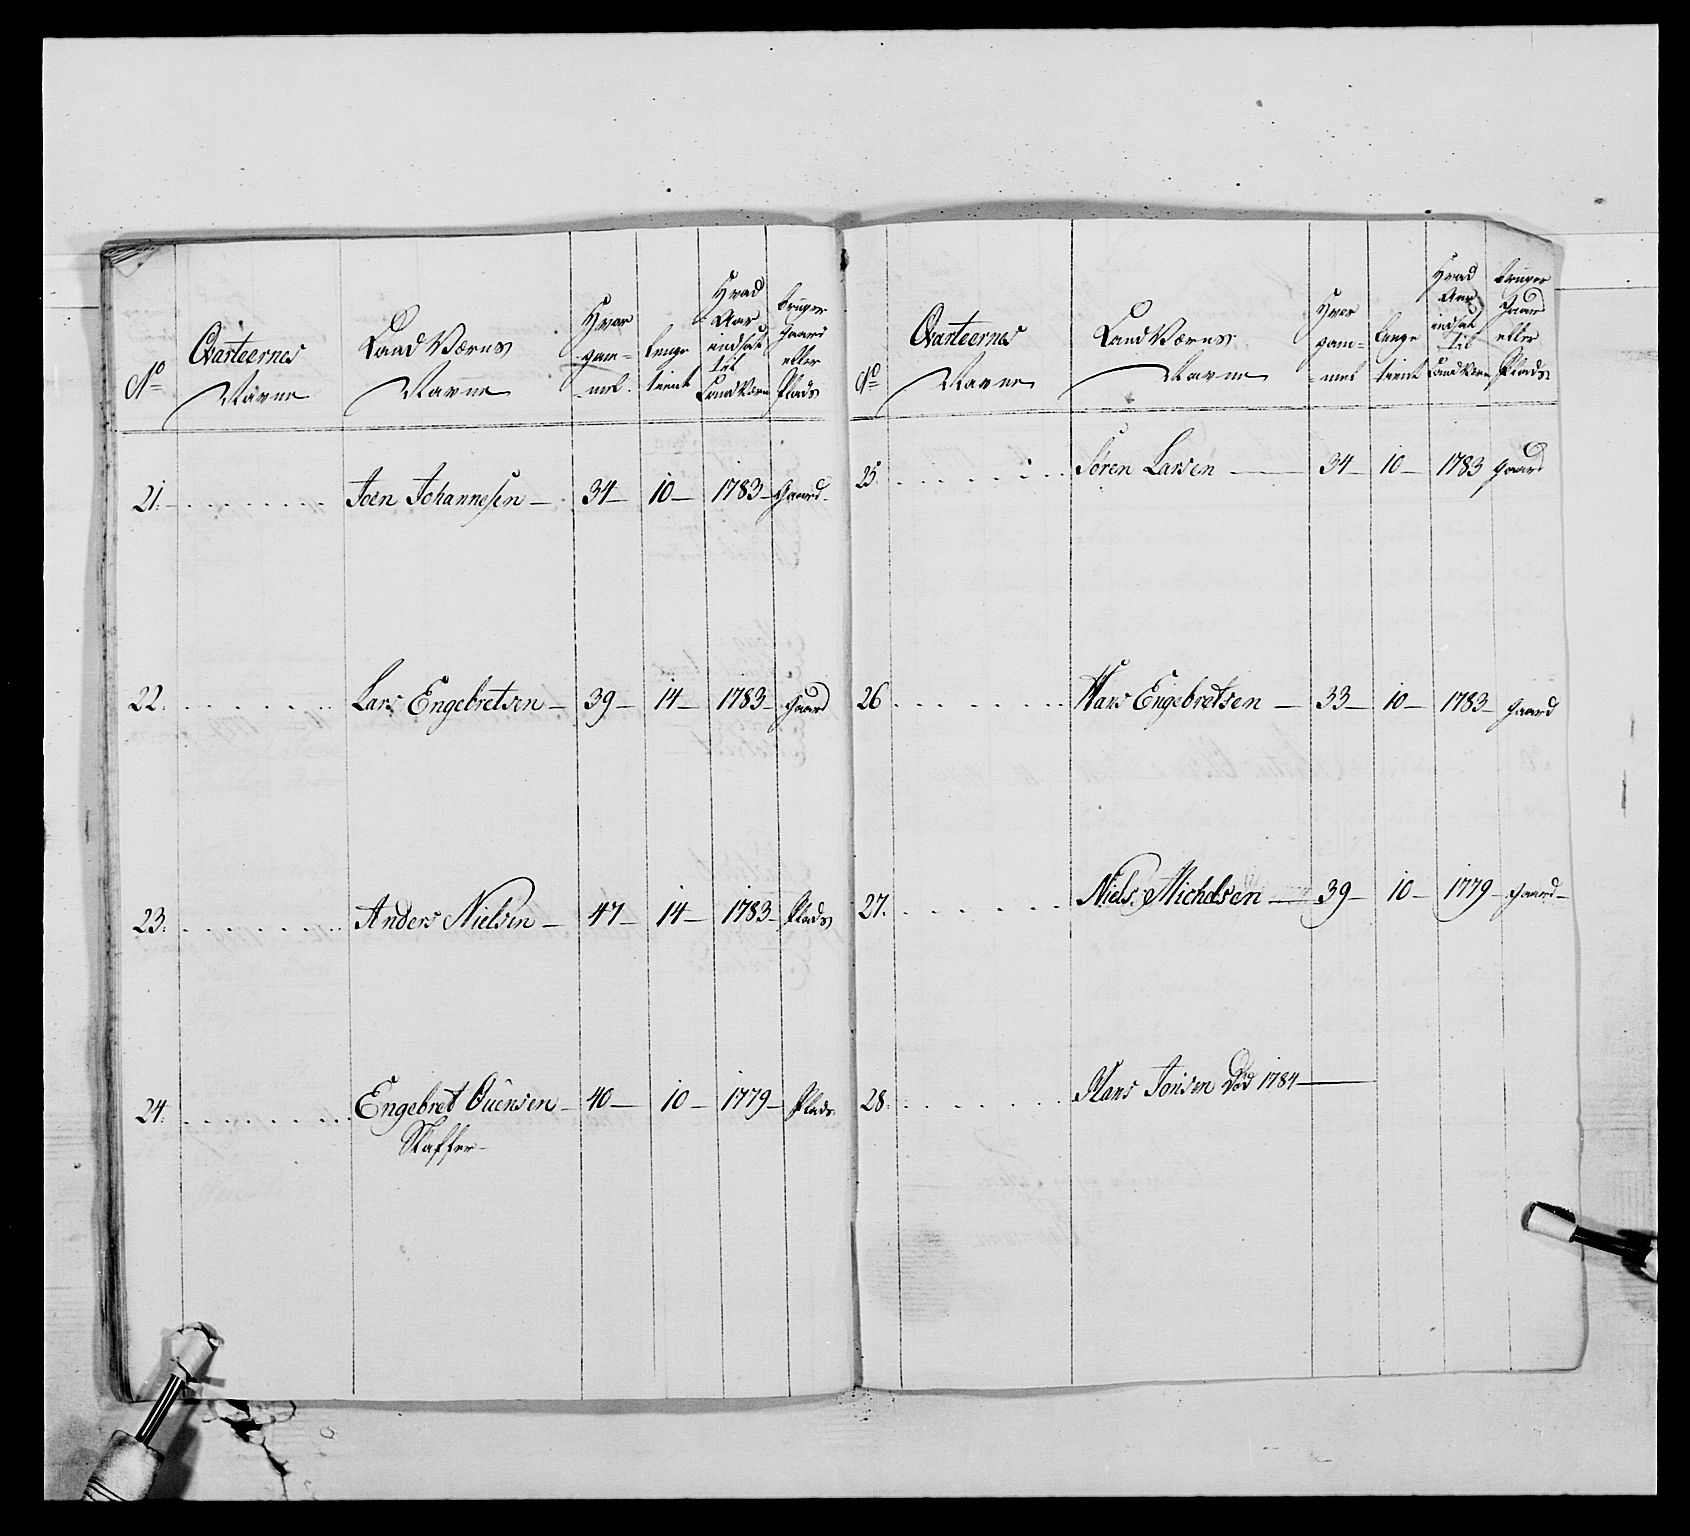 No
Qvarteernes
Navne
Land Værns
Navne
Hvor
gam=
mel
lenge
tient
Hvad
Aar
indsat
til
Land Værn
bruger
gaard
eller
Plads
21. Joen Johannesen — 34 — 10 — 1783 — gaard
22. Lars Engebretsen — 39 — 14 — 1783 gaard
23. Anders Nielsen — 47 — 14 — 1783 — Plads
24. Engebret Guensen — 40 — 10 — 1779 — Plads
No
Qvarteernes
Navne
Land Værns
Navne
Hvor
gam=
mel
lenge
tient
Hvad
Aar
indsat
til
Land Værn
bruger
Gaard
eller
Plads
25. Søren Larsen — 34 — 10 — 1783 gaard
26 Hans Engebretsen — 33 — 10 — 1783 — gaard
27. Niels Michelsen — 39 — 10 — 1779 — gaard —
28. Hans Jonsen Død 1784 —